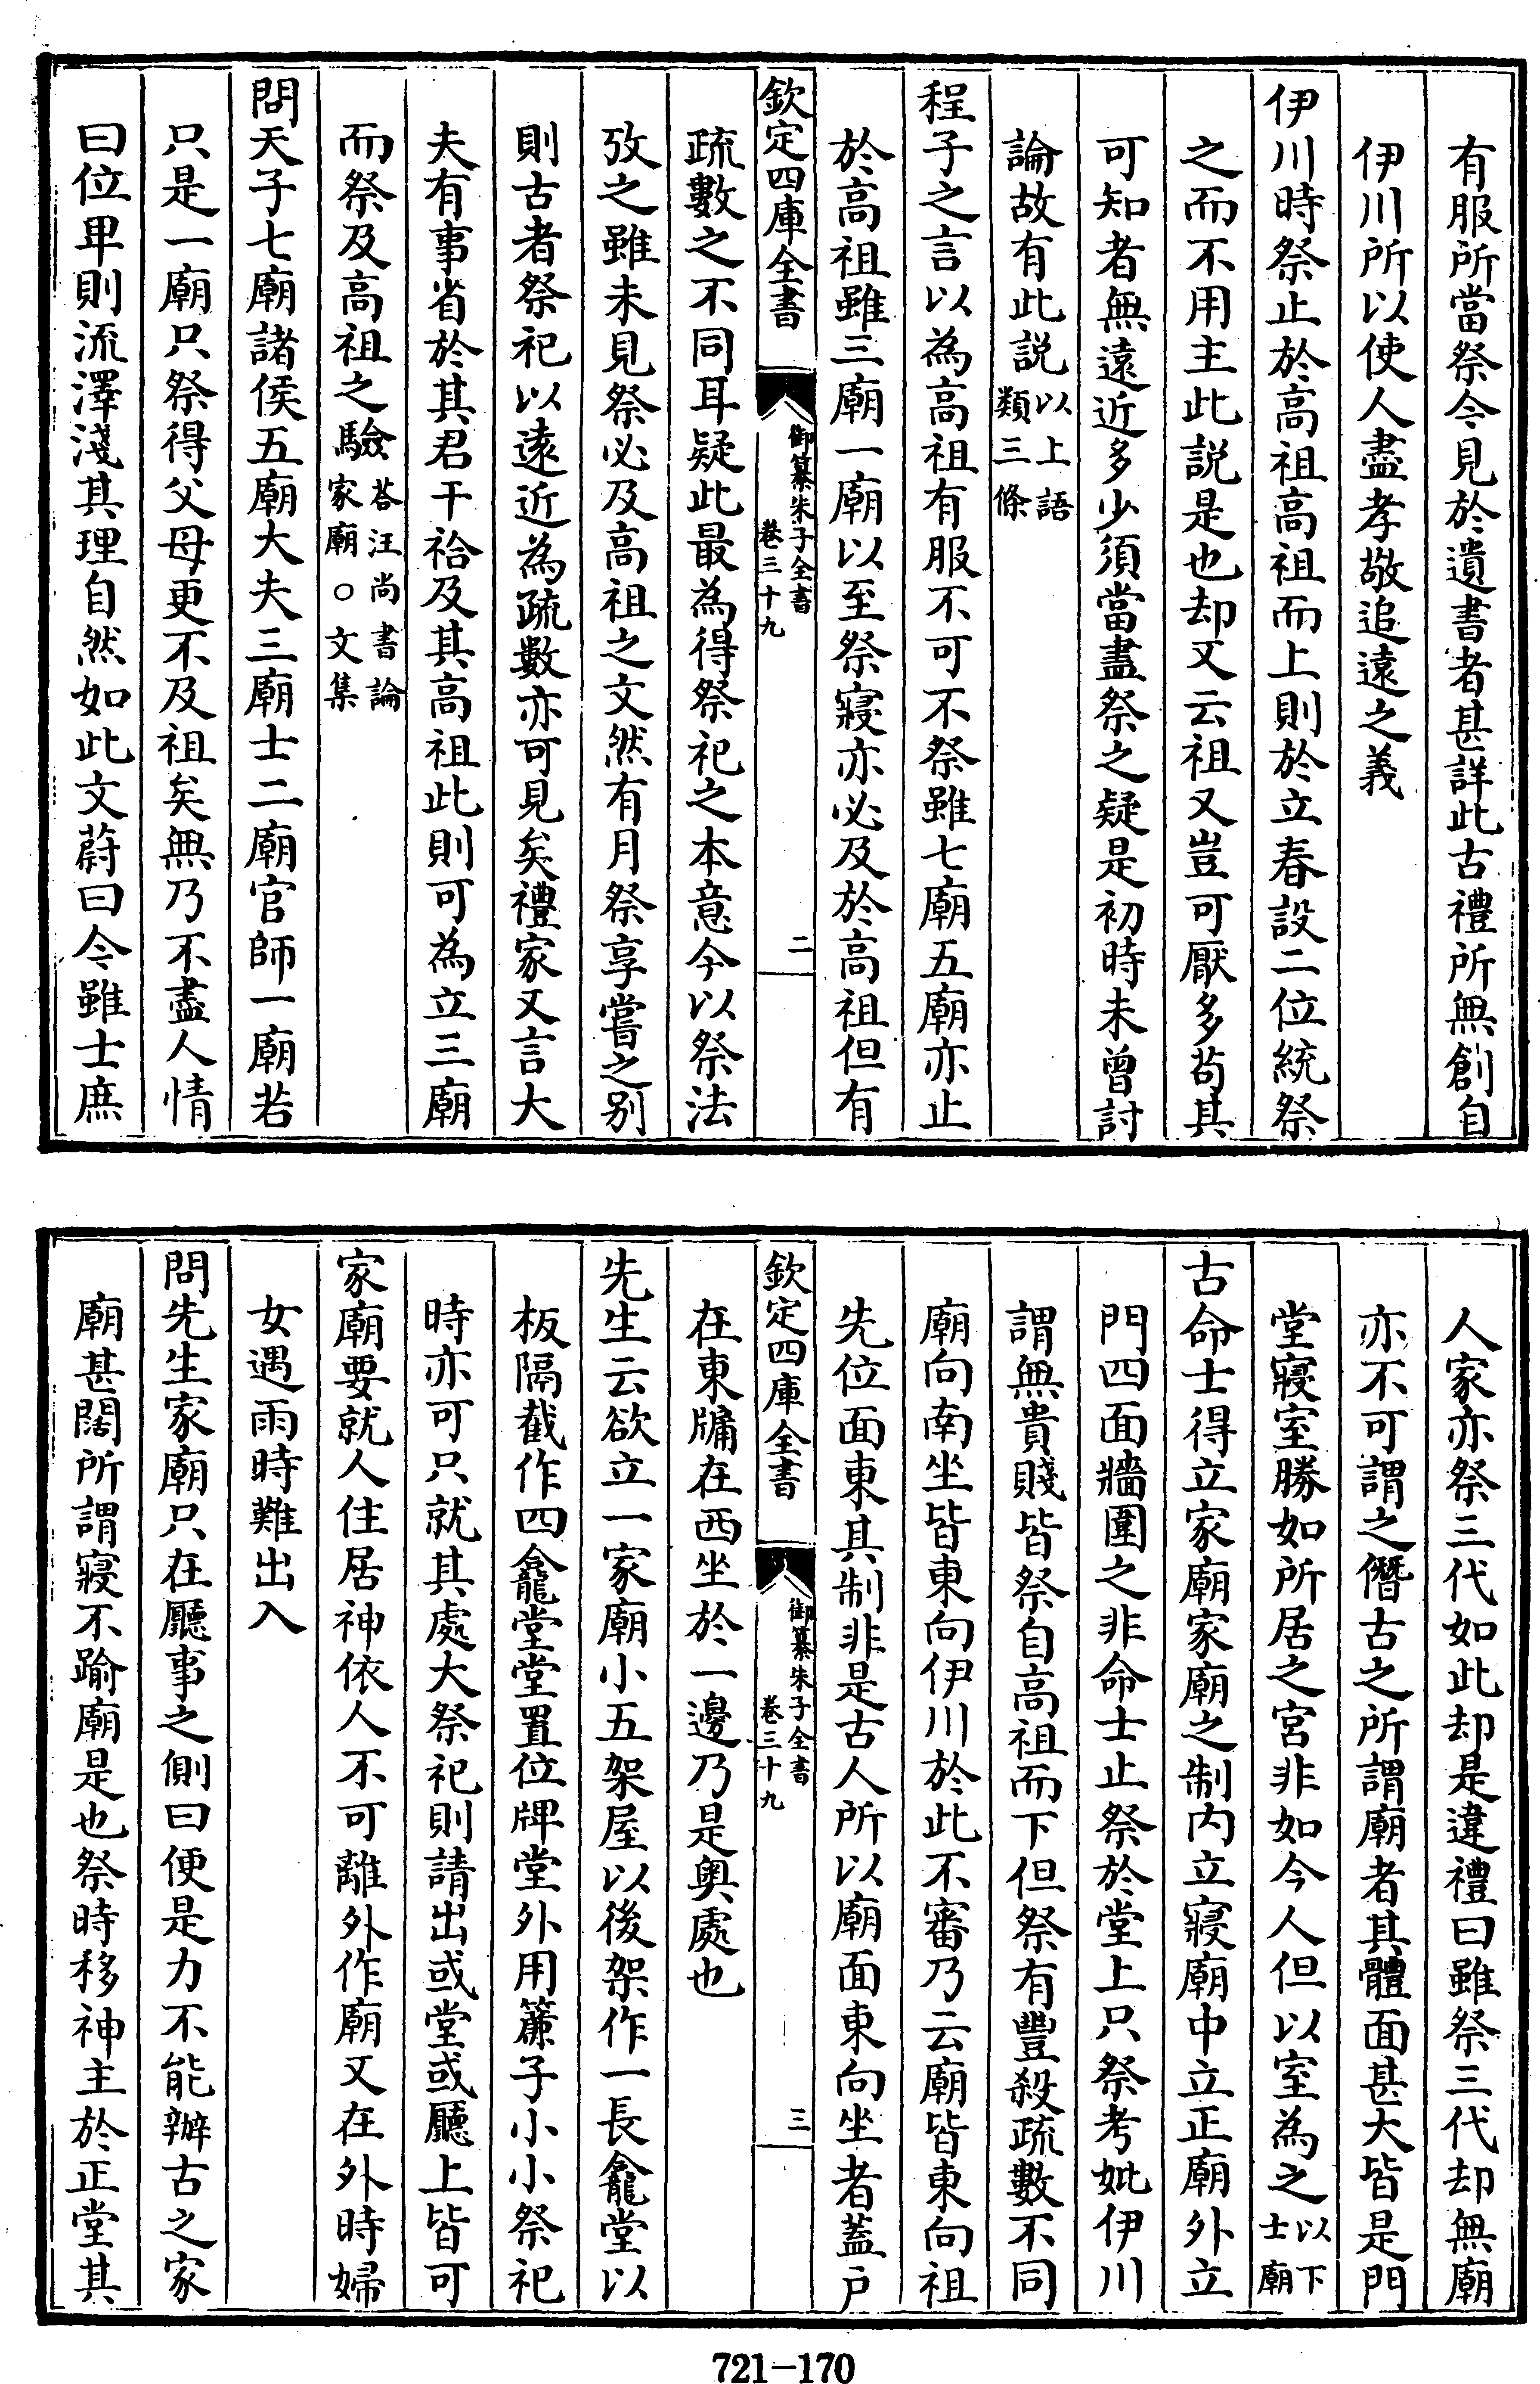 有服所當祭今見於遺書者甚詳此古禮所無創自
伊川所以使人盡孝敬追遠之義
伊川時祭止於高祖高祖而上則於立春設二位統祭
之而不用主此説是也却又云祖又豈可厭多苟其
可知者無遠近多少須當盡祭之疑是初時未曾討
論故有此説以上語類三條
程子之言以為高祖有服不可不祭雖七廟五廟亦止
於高祖雖三廟一廟以至祭寢亦必及於高祖但有
欽定四庫全書
御纂朱子全書
卷三十九
二
疏數之不同耳疑此最為得祭祀之本意今以祭法
攷之雖未見祭必及高祖之文然有月祭享嘗之别
則古者祭祀以逺近為疏數亦可見矣禮家又言大
夫有事省於其君干祫及其高祖此則可為立三廟
而祭及高祖之驗荅汪尚書論家廟○文集
問天子七廟諸侯五廟大夫三廟士二廟官師一廟若
只是一廟只祭得父母更不及祖矣無乃不盡人情
曰位卑則流澤淺其理自然如此文蔚曰今雖士庶
人家亦祭三代如此却是違禮曰雖祭三代却無廟
亦不可謂之僭古之所謂廟者其體面甚大皆是門
堂寢室勝如所居之宮非如今人但以室為之以下士廟
古命士得立家廟家廟之制内立寢廟中立正廟外立
門四面牆圍之非命士止祭於堂上只祭考妣伊川
謂無貴賤皆祭自高祖而下但祭有豐殺疏數不同
廟向南坐皆東向伊川於此不審乃云廟皆東向祖
先位面東其制非是古人所以廟面東向坐者蓋户
欽定四庫全書
御纂朱子全書
卷三十九
三
在東牖在西坐於一邊乃是奥處也
先生云欲立一家廟小五架屋以後架作一長龕堂以
板隔截作四龕堂堂置位牌堂外用簾子小小祭祀
時亦可只就其處大祭祀則請出或堂或廳上皆可
家廟要就人住居神依人不可離外作廟又在外時婦
女遇雨時難出入
問先生家廟只在廳事之側曰便是力不能辦古之家
廟甚闊所謂寢不踰廟是也祭時移神主於正堂其
721-170